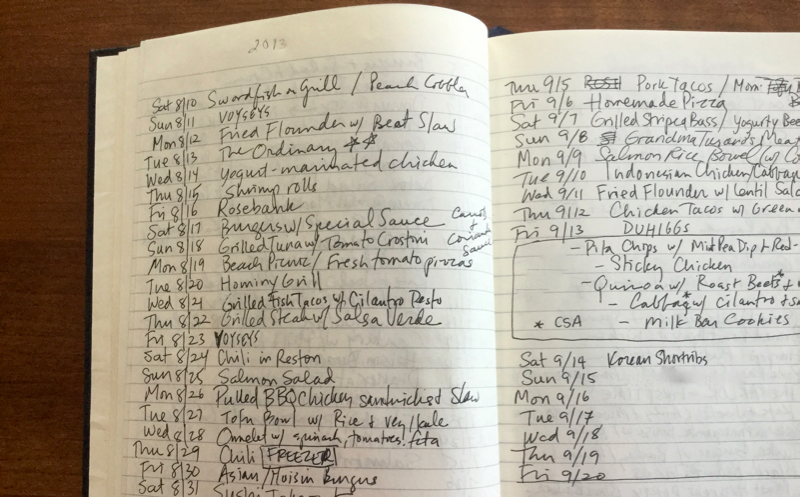 2013
Sat 8/10 Swordfish on Grill / Peach Cobbler
Sun 8/11 VOYSEYS
Mon 8/12 Fried Flounder w/ Beet Slaw
Tue 8/13 The Ordinary
Wed 8/14 yogurt-marinated chicken
Thu 8/15 Shrimp rolls
Fri 8/16 Rosebank
Sat 8/17 Burgers w/ Special Sauce
Sun 8/18 Grilled Tuna w/ Tomato Crostini
Mon 8/19 Beach Picnic / Fresh tomato pizzas
Tue 8/20 Hominy Grill
Wed 8/21 Grilled Fish Tacos w/ Cilantro Pesto
Thu 8/22 Grilled Steak w/ Salsa Verde
Fri 8/23 VOYSEYS
Sat 8/24 Chili in Reston
Sun 8/25 Salmon Salad
Mon 8/26 Pulled BBQ Chicken sandwiches & Slaw
Tue 8/27 Tofu Bowl w/ Rice & veg/kale
Wed 8/28 Omelet w/ spinach, tomatoes, feta
Thu 8/29 Chili FREEZER
Fri 8/30 Asian/Hoisin Burgers
Sat 8/31 Sushi
Thu 9/5 Pork Tacos / Mom
Fri 9/6 Homemade Pizza
Sat 9/7 Grilled Striped Bass / yogurty Bee
Sun 9/8 Grandma
Mon 9/9 Salmon Rice Bowl (w/ Co
Tue 9/10 Indonesian Chicken/Cabbag
Wed 9/11 Fried Flounder w/ Lentil Sala
Thu 9/12 Chicken Tacos w/ Green
Fri 9/13 DUHIGGS
- Pita Chips w/ Mint Pea Dip & Red-
- Sticky Chicken
- Quinoa w/ Roast Beets* &
- Cabbag* w/ Cilantro &
* CSA - Milk Bar Cookies
Sat 9/14 Korean Shortribs
Sun 9/15
Mon 9/16
Tue 9/17
Wed 9/18
Thu 9/19
Fri 9/20